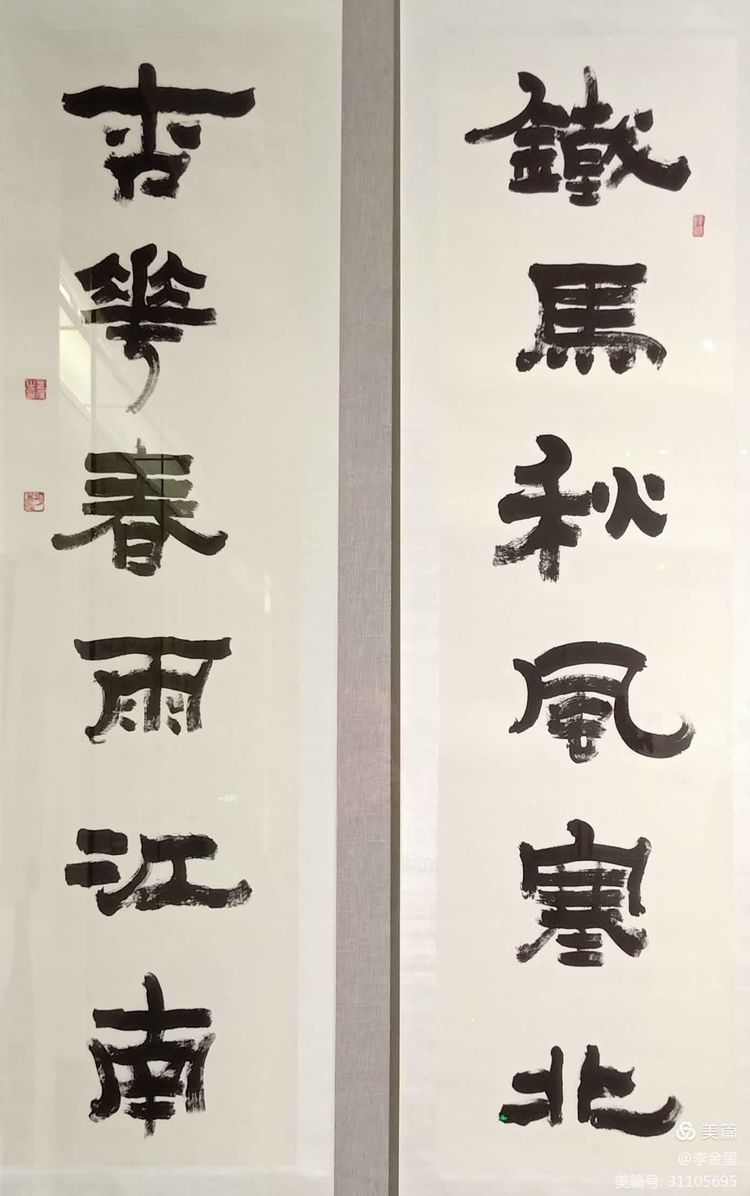 鐵馬秋風塞北
杏華春雨江南
美篇
@李金玺
美篇号: 31105695